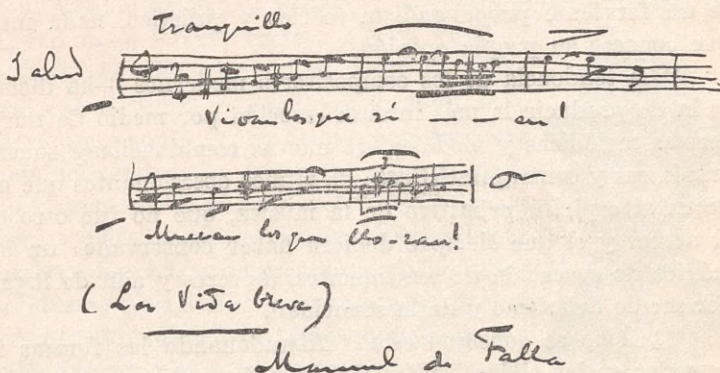 Tranquillo
Salud
Vivan los que ri — — — en!
3
Mueran los que llo-ran!
(La Vida breve)
Manuel de Falla